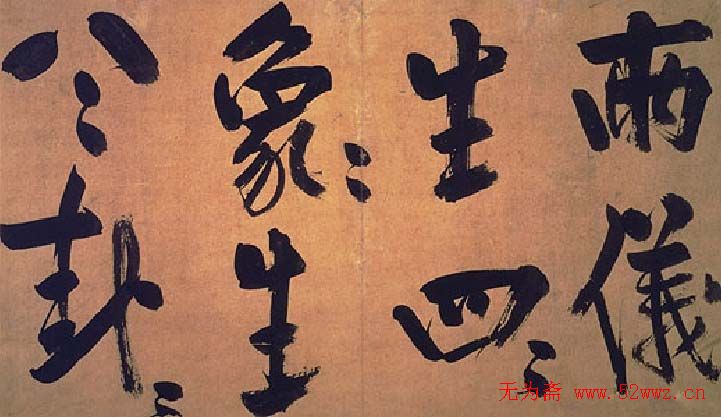 兩儀
生四〻
象〻生
八〻卦〻
无为斋 www.52wwz.cn